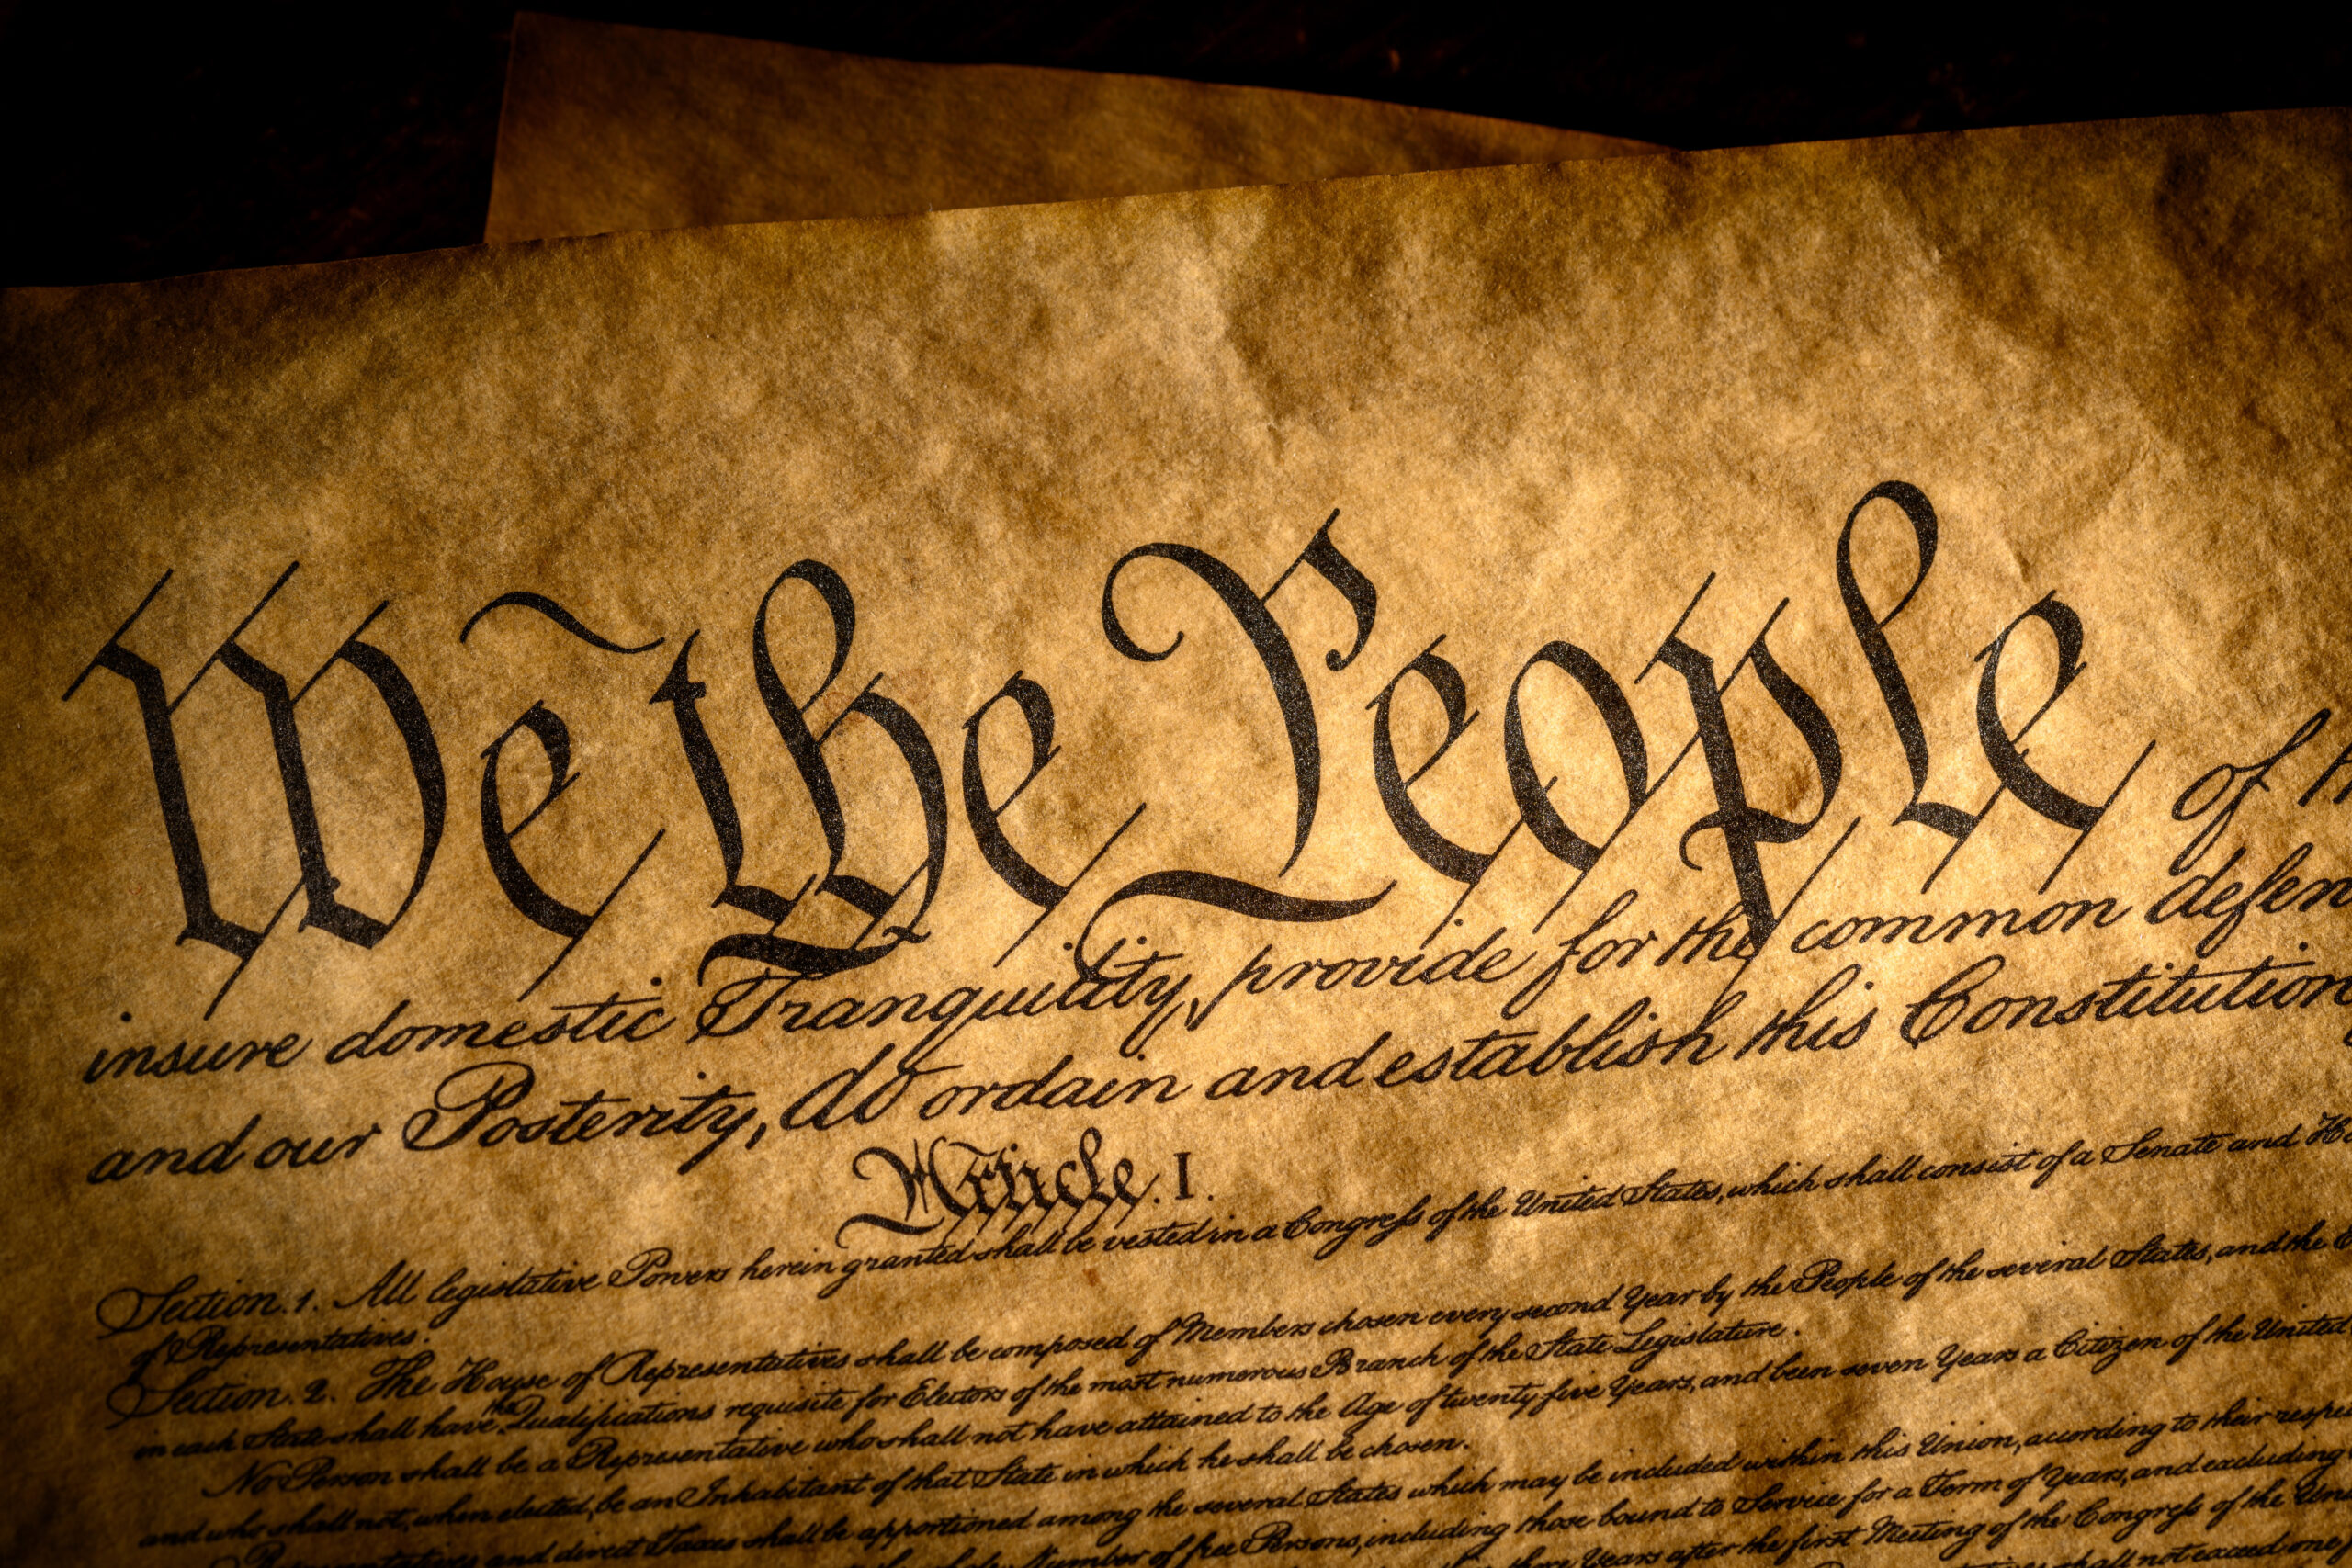 We the People of
insure domestic Tranquility, provide for the common defen
and our Posterity, do ordain and establish this Constitution
Article. I.
Section. 1. All legislative Powers herein granted shall be vested in a Congress of the United States, which shall consist of a Senate and
of Representatives.
Section. 2. The House of Representatives shall be composed of Members chosen every second Year by the People of the several States, and the
in each State shall have the Qualifications requisite for Electors of the most numerous Branch of the State Legislature.
No Person shall be a Representative who shall not have attained to the Age of twenty five Years, and been seven Years a Citizen of the United
and who shall not, when elected, be an Inhabitant of that State in which he shall be chosen.
Representatives and direct Taxes shall be apportioned among the several States which may be included within this Union, according to their respe
Number of free Persons, including those bound to Service for a Term of Years, and excluding
three Years after the first Meeting of the Congress of the
shall not exceed one